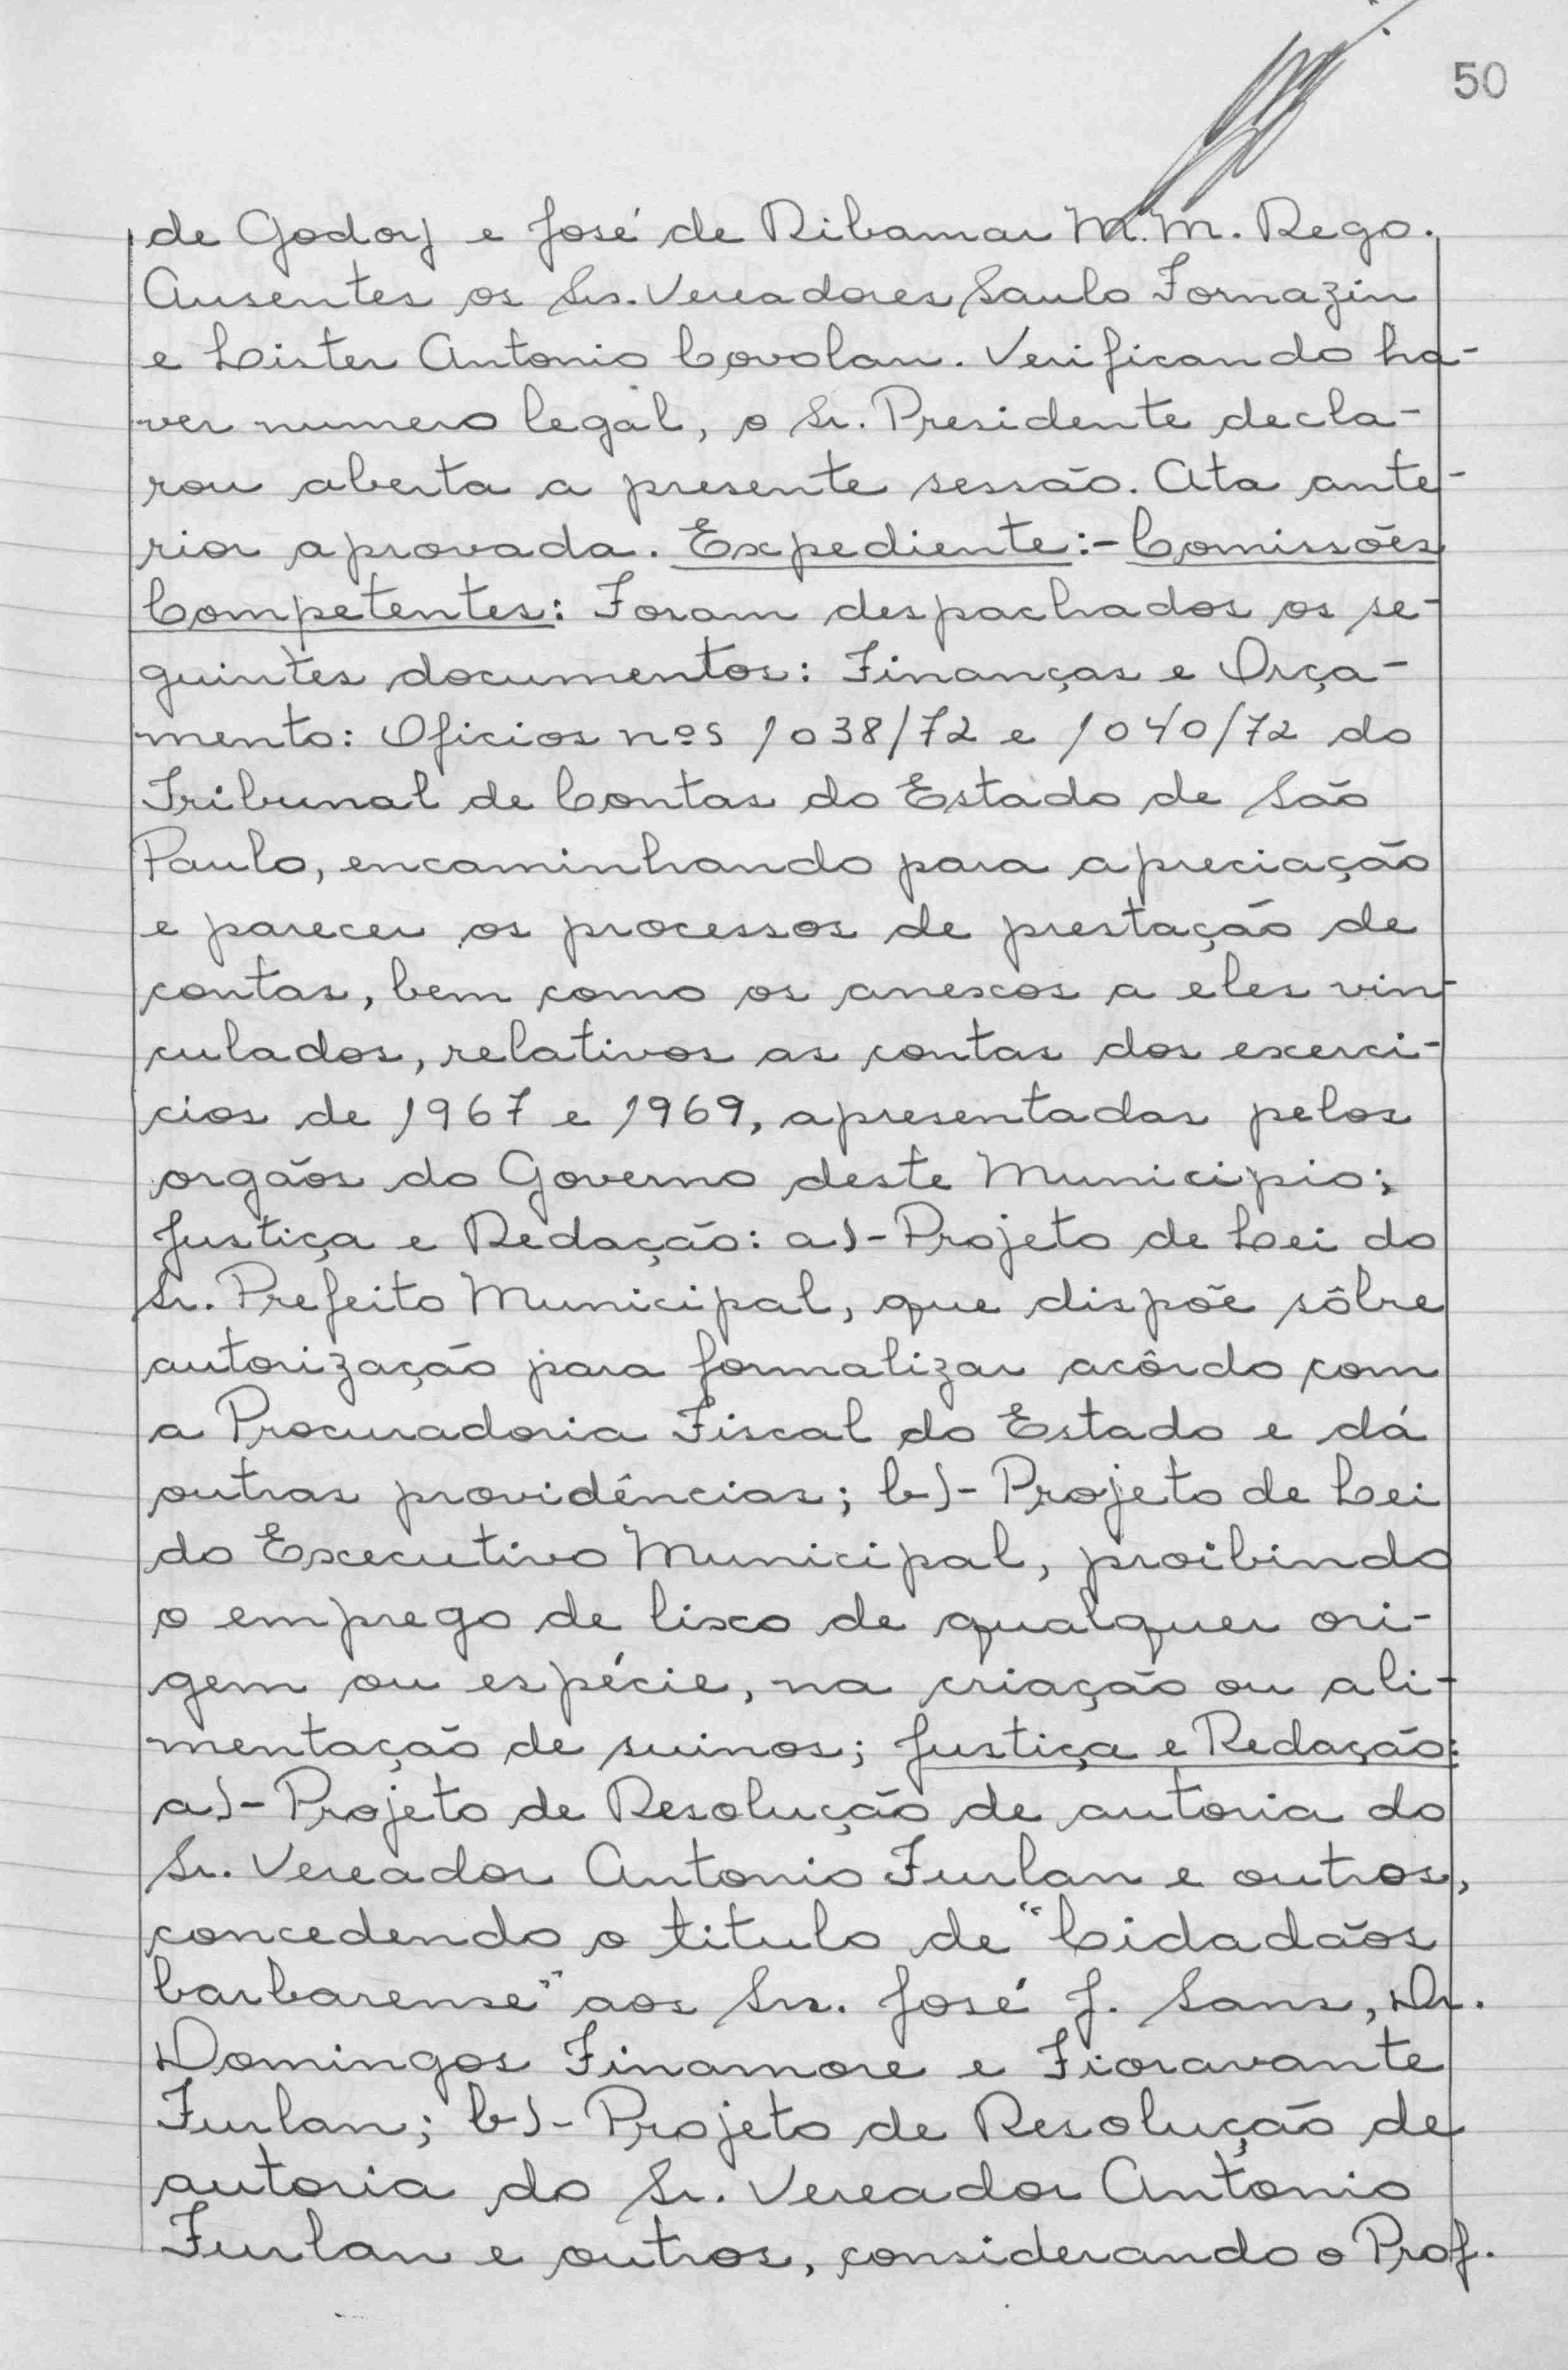 50
de Godoy e José de Ribamar M. M. Rego.
Ausentes os Srs. Vereadores Saulo Fornazin
e Lister Antonio Covolan. Verificando ha-
ver numero legal, o Sr. Presidente decla-
rou aberta a presente sessão. Ata ante-
rior aprovada. Expediente:- Comissões
Competentes: Foram despachados os se-
guintes documentos: Finanças e Orça-
mento: Oficios nos 1038/72 e 1040/72 do
Tribunal de Contas do Estado de São
Paulo, encaminhando para apreciação
e parecer os processos de prestação de
contas, bem como os anexos a eles vin-
culados, relativos as contas dos exerci-
cios de 1967 e 1969, apresentadas pelos
orgãos do Governo deste Municipio;
Justiça e Redação: a)- Projeto de Lei do
Sr. Prefeito Municipal, que dispõe sôbre
autorização para formalizar acôrdo com
a Procuradoria Fiscal do Estado e dá
outras providências; b)- Projeto de Lei
do Executivo Municipal, proibindo
o emprego de lixo de qualquer ori-
gem ou espécie, na criação ou ali-
mentação de suinos; Justiça e Redação:
a)- Projeto de Resolução de autoria do
Sr. Vereador Antonio Furlan e outros,
concedendo o titulo de "Cidadãos
barbarense" aos Srs. José J. Sans, Dr.
Domingos Finamore e Fioravante
Furlan; b)- Projeto de Resolução de
autoria do Sr. Vereador Antonio
Furlan e outros, considerando o Prof.